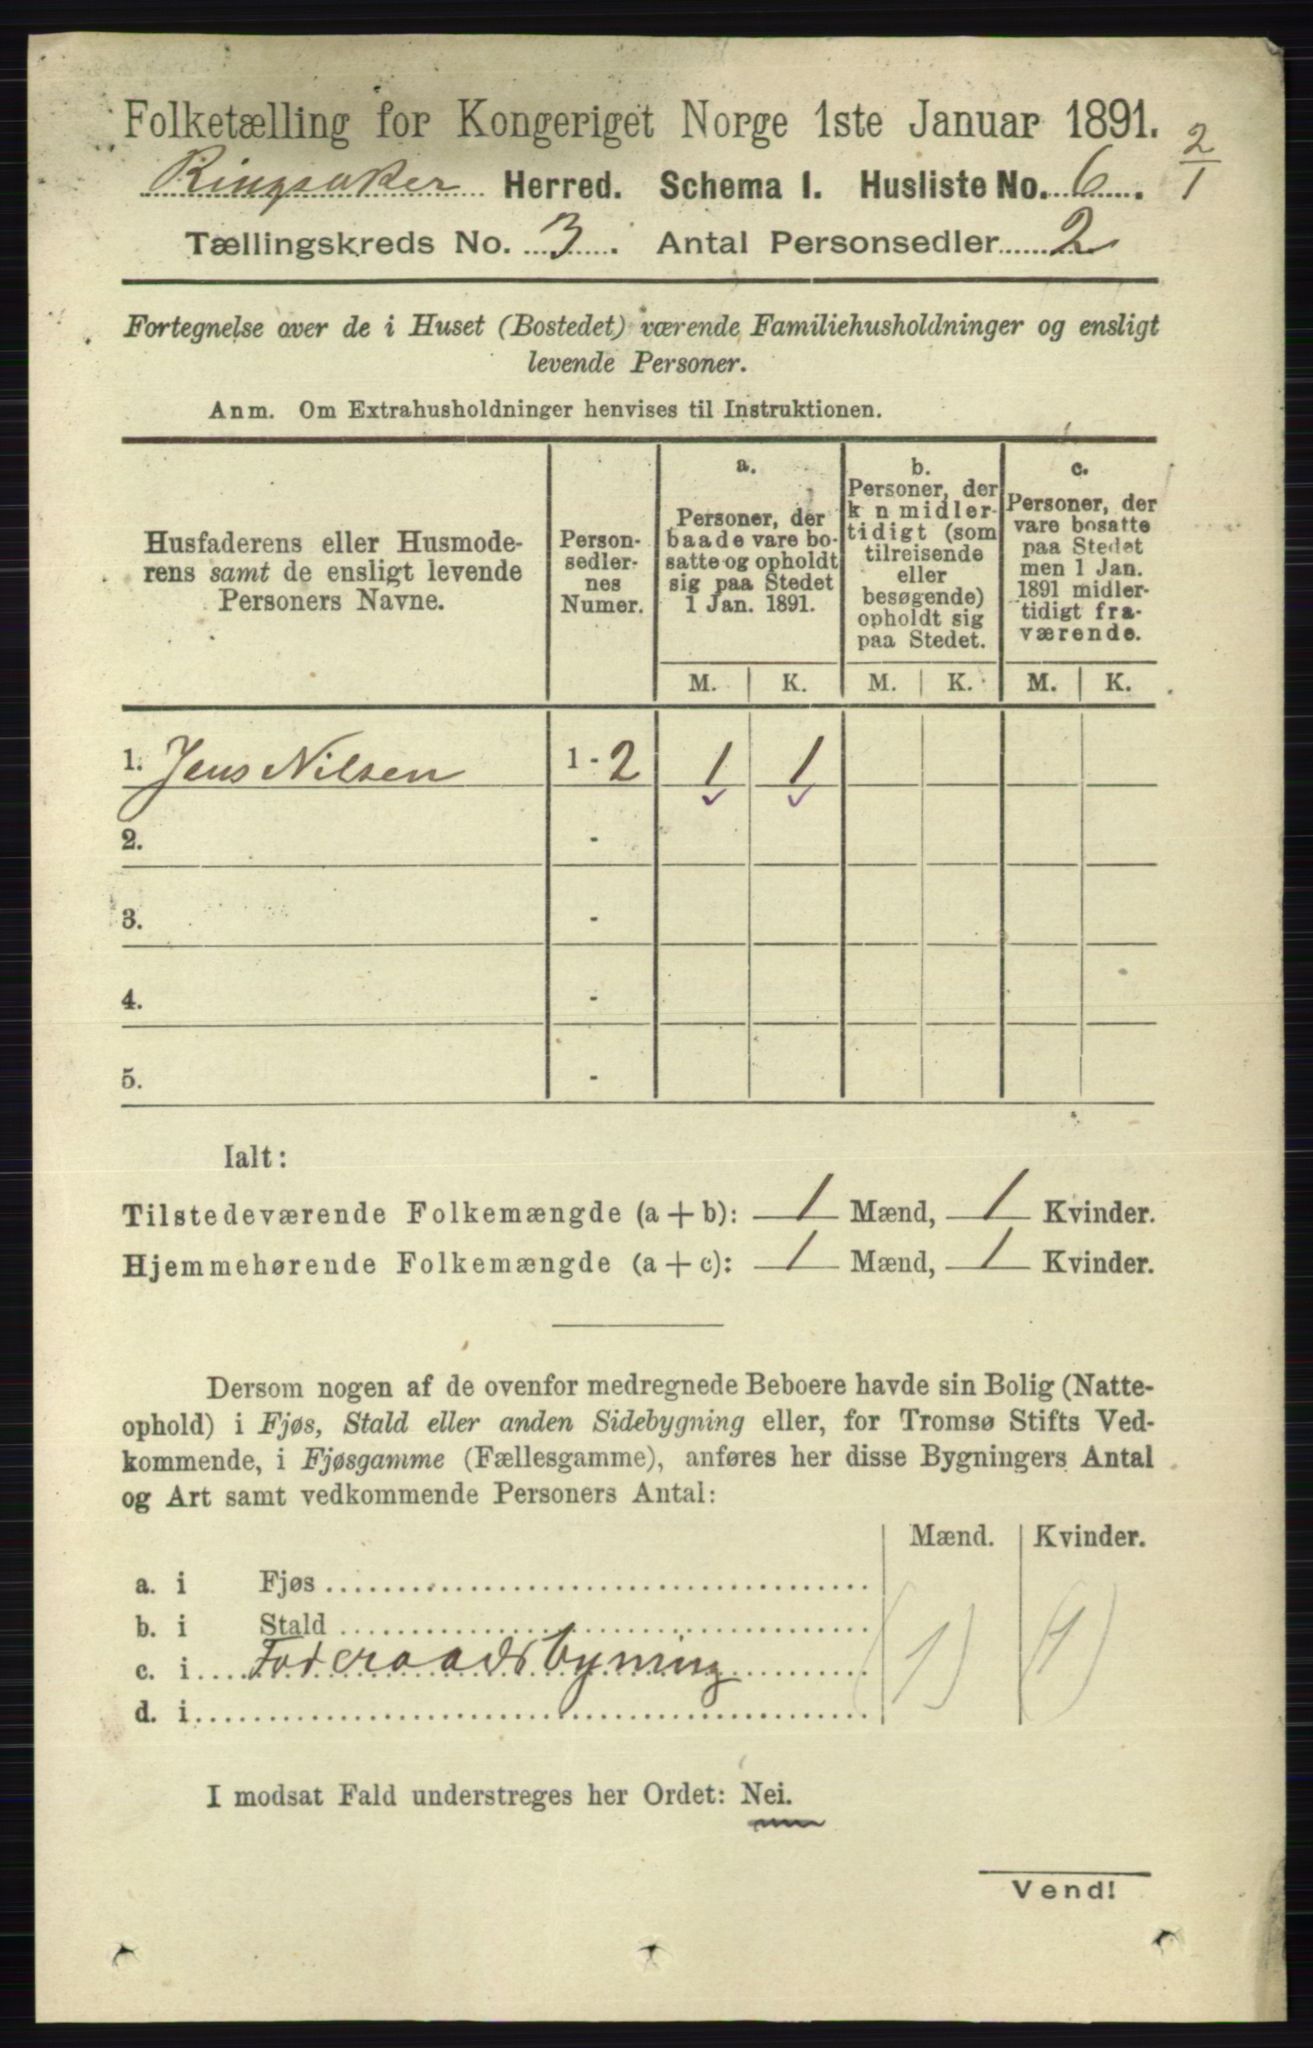 Folketælling for Kongeriget Norge 1ste Januar 1891.
Ringsaker Herred. Schema I. Husliste No. 6. 2/1
Tællingskreds No. 3. Antal Personsedler 2
Fortegnelse over de i Huset (Bostedet) værende Familiehusholdninger og ensligt
levende Personer.
Anm. Om Extrahusholdninger henvises til Instruktionen.
Husfaderens eller Husmode-
rens samt de ensligt levende
Personers Navne.
Person-
sedler-
nes
Numer.
a.
Personer, der
baade vare bo-
satte og opholdt
sig paa Stedet
1 Jan. 1891.
b.
Personer, der
k n midler-
tidigt (som
tilreisende
eller
besøgende)
opholdt sig
paa Stedet.
c.
Personer, der
vare bosatte
paa Stedet
men 1 Jan.
1891 midler-
tidigt fra-
værende.
M. K. M. K. M. K.
1. Jens Nilsen 1 - 2 1 1
2. -
3. -
4. -
5. -
Ialt:
Tilstedeværende Folkemængde (a + b): 1 Mænd, 1 Kvinder.
Hjemmehørende Folkemængde (a + c): 1 Mænd, 1 Kvinder.
Dersom nogen af de ovenfor medregnede Beboere havde sin Bolig (Natte-
ophold) i Fjøs, Stald eller anden Sidebygning eller, for Tromsø Stifts Ved-
kommende, i Fjøsgamme (Fællesgamme), anføres her disse Bygningers Antal
og Art samt vedkommende Personers Antal:
Mænd. Kvinder.
a. i Fjøs
b. i Stald
c. i Foderaadsbyning (1) (1)
d. i
I modsat Fald understreges her Ordet: Nei.
Vend!